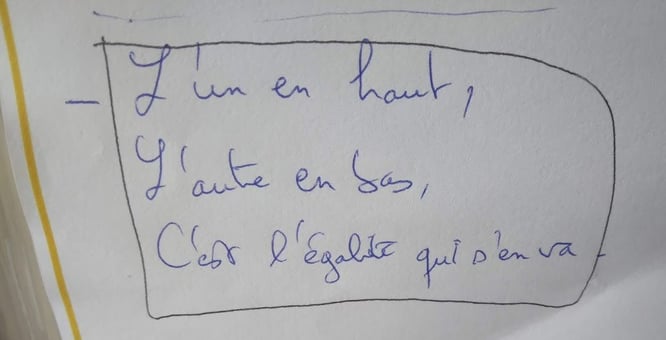 - L'un en haut,
L'autre en bas,
C'est l'égalité qui s'en va.